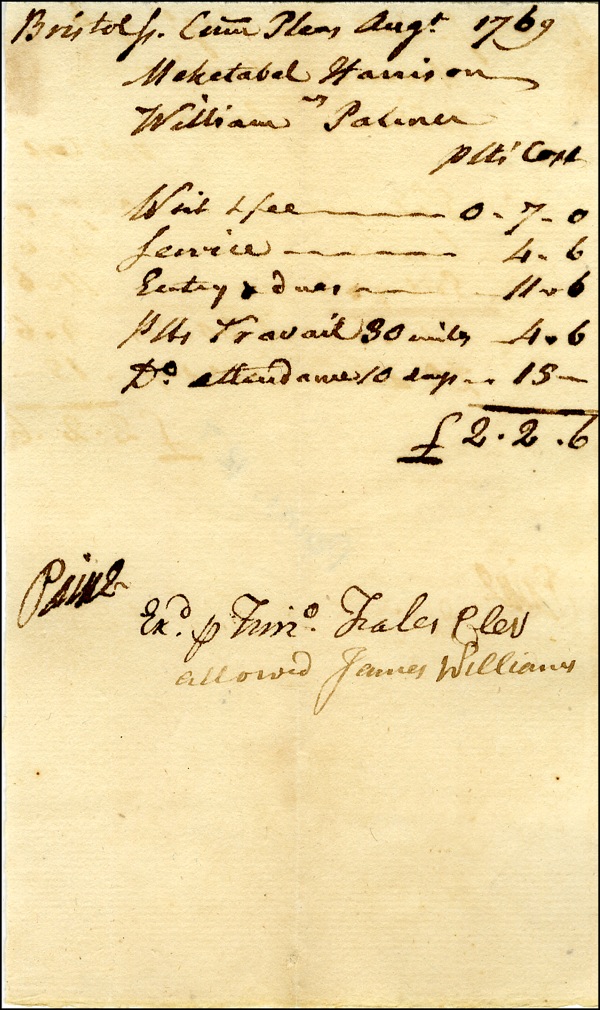 Bristol ss. Com Pleas Augt 1769
Mehetabel Harrison
vs
William Palmer
plts Cost
Writ & fee 0-7-0
Service 4-6
Entry & dues 11-6
Plts Travail 30 miles 4.6
Do attendance 10 days 15-
£2.2.6
Paine
Exd. p Timo. Fales Cler
allowed James Williams